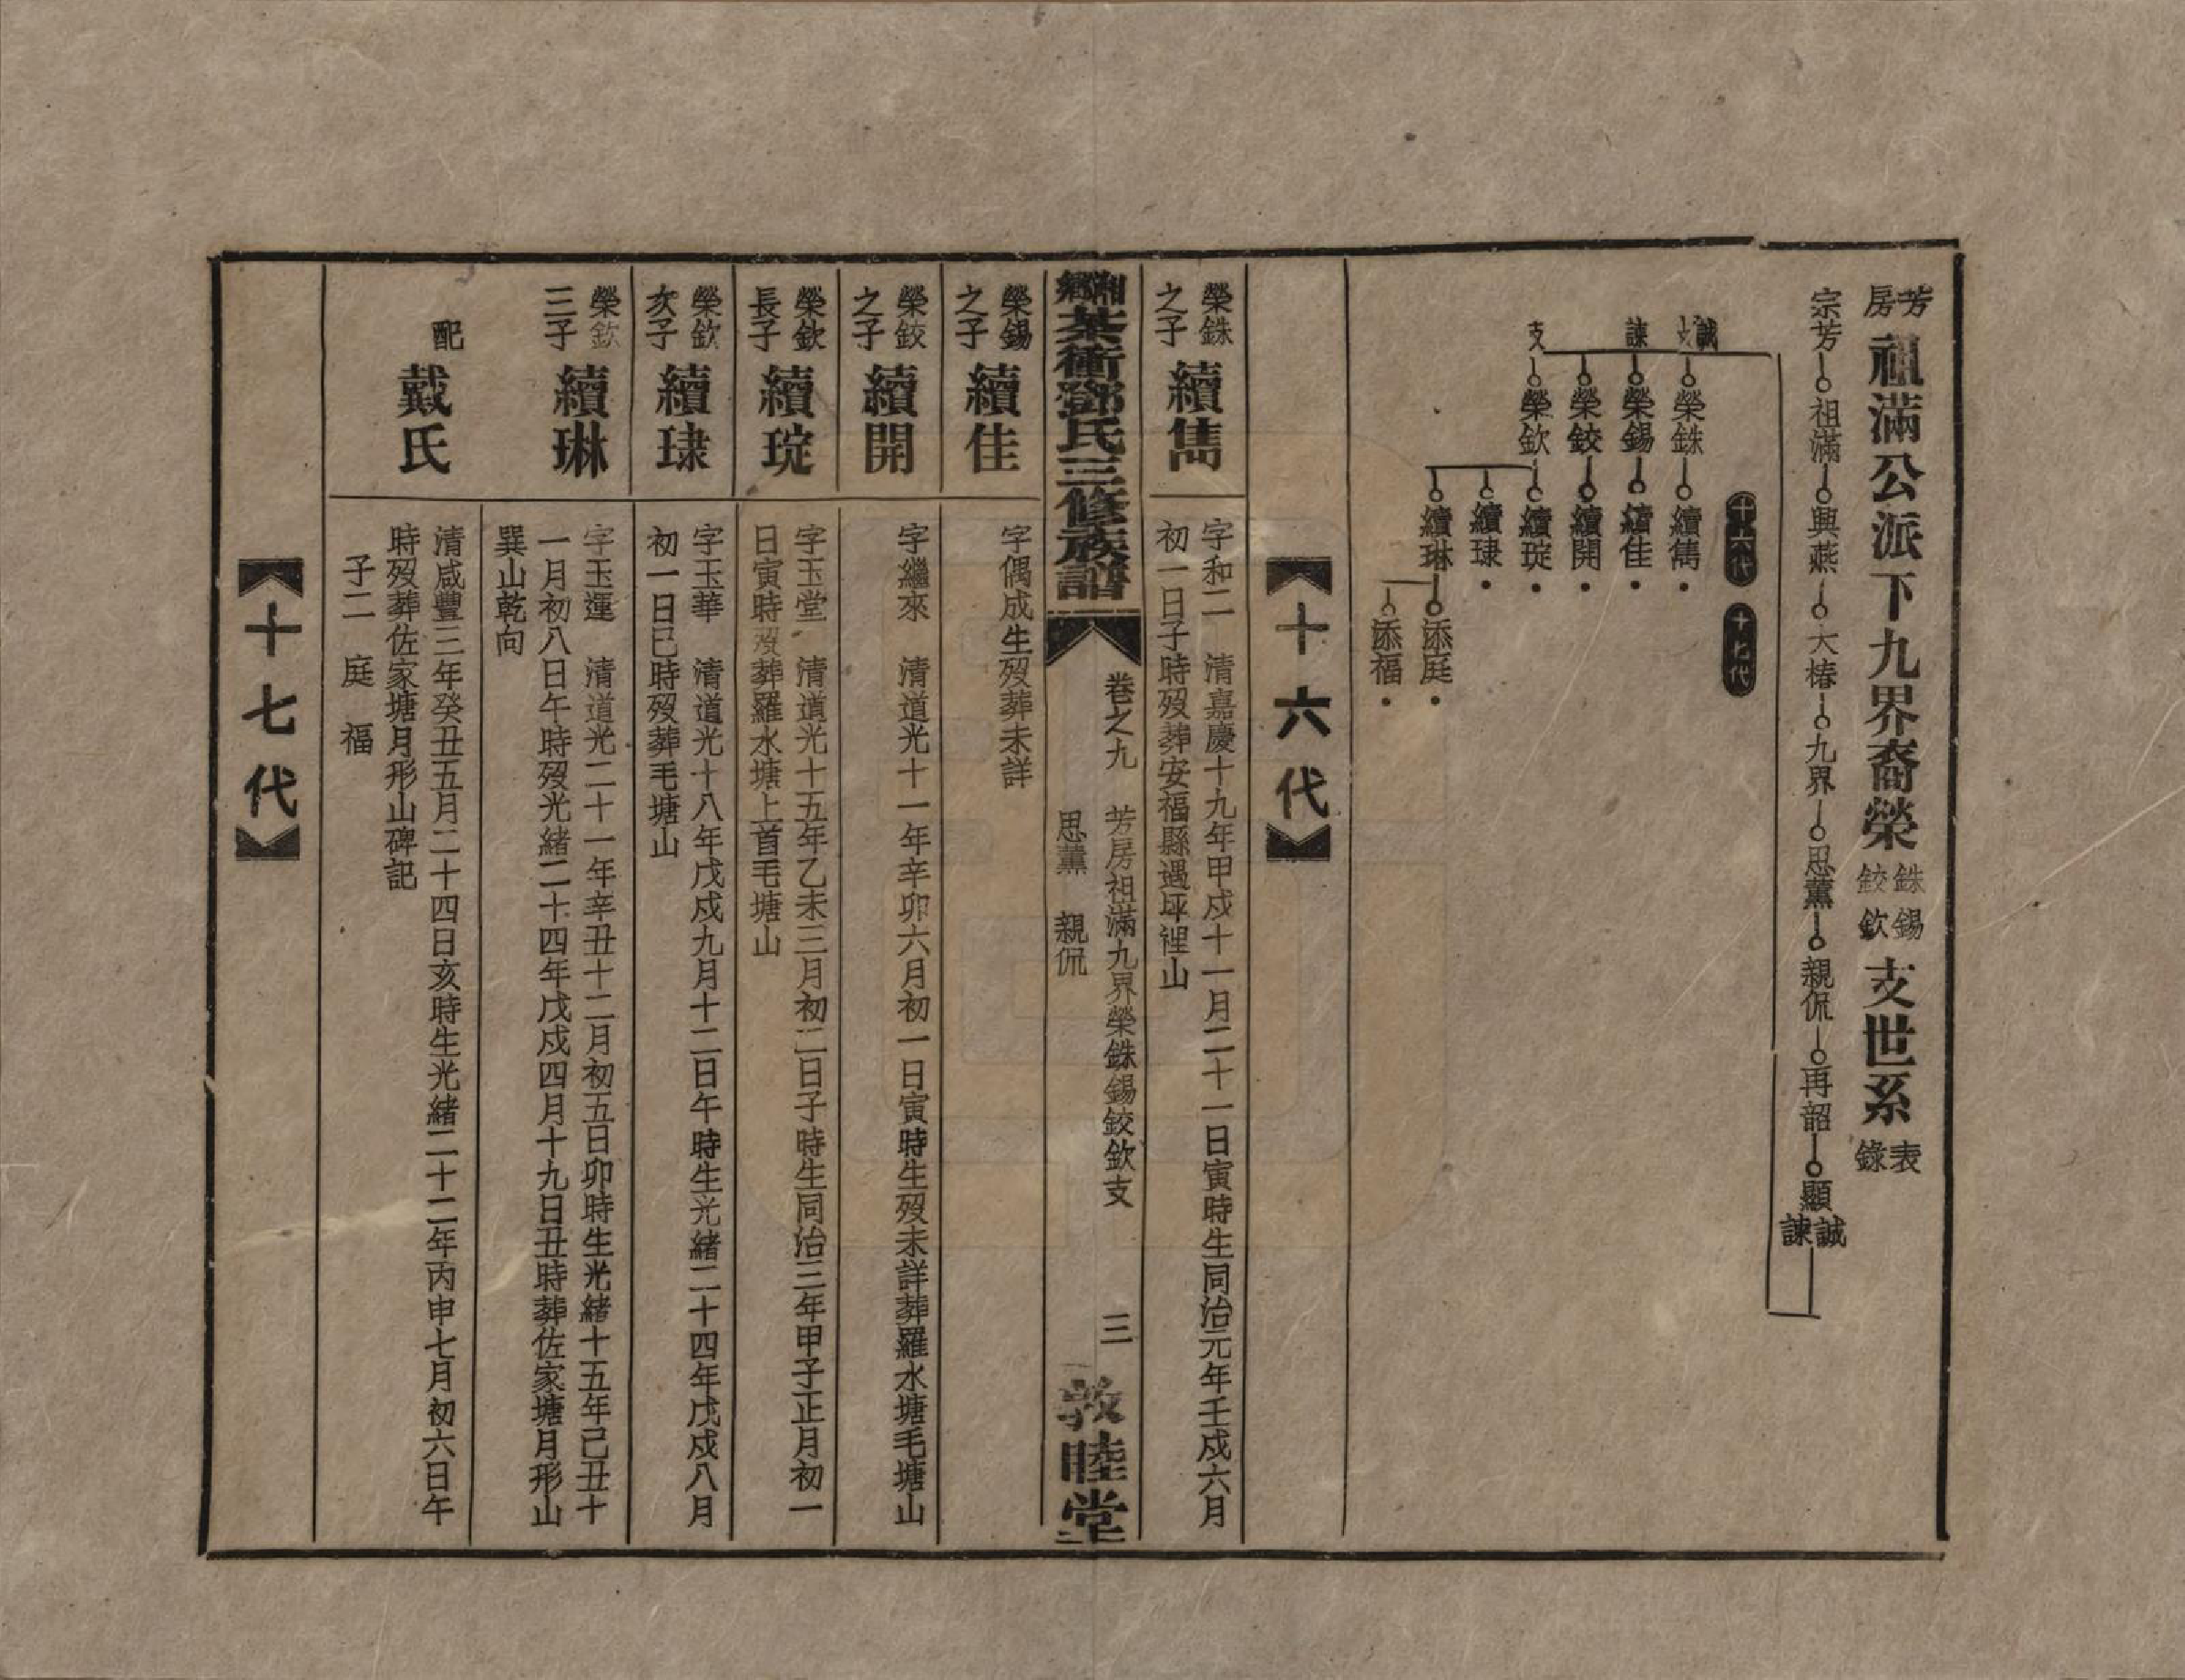 芳房 祖滿公派下九界裔榮 銖錫鉸欽 支世系 表錄
宗芳 祖滿 興燕 大椿 九界 思薰 親侃 再韶 顯 誠諫
十六代 十七代
誠支 榮銖 續雋
諫 榮錫 續佳
榮鉸 續開
支 榮欽 續琔
續琭
續琳 添庭
添福
十六代
榮銖之子 續雋
字和二 清嘉慶十九年甲戌十一月二十一日寅時生同治元年壬戌六月
初一日子時歿葬安福縣遇坪裡山
湘鄉茶衝鄧氏三修族譜 卷之九 芳房祖滿九界榮銖錫鉸欽支 思薰 親侃 三 敦睦堂
榮錫之子 續佳
字偶成生歿葬未詳
榮鉸之子 續開
字繼來 清道光十一年辛卯六月初一日寅時生歿未詳葬羅水塘毛塘山
榮欽長子 續琔
字玉堂 清道光十五年乙未三月初二日子時生同治三年甲子正月初一
日寅時歿葬羅水塘上首毛塘山
榮欽次子 續琭
字玉華 清道光十八年戊戌九月十二日午時生光緒二十四年戊戌八月
初一日巳時歿葬毛塘山
榮欽三子 續琳
字玉運 清道光二十一年辛丑十二月初五日卯時生光緒十五年己丑十
一月初八日午時歿光緒二十四年戊戌四月十九日丑時葬佐家塘月形山
巽山乾向
配 戴氏
清咸豐三年癸丑五月二十四日亥時生光緒二十二年丙申七月初六日午
時歿葬佐家塘月形山碑記
子二 庭 福
十七代